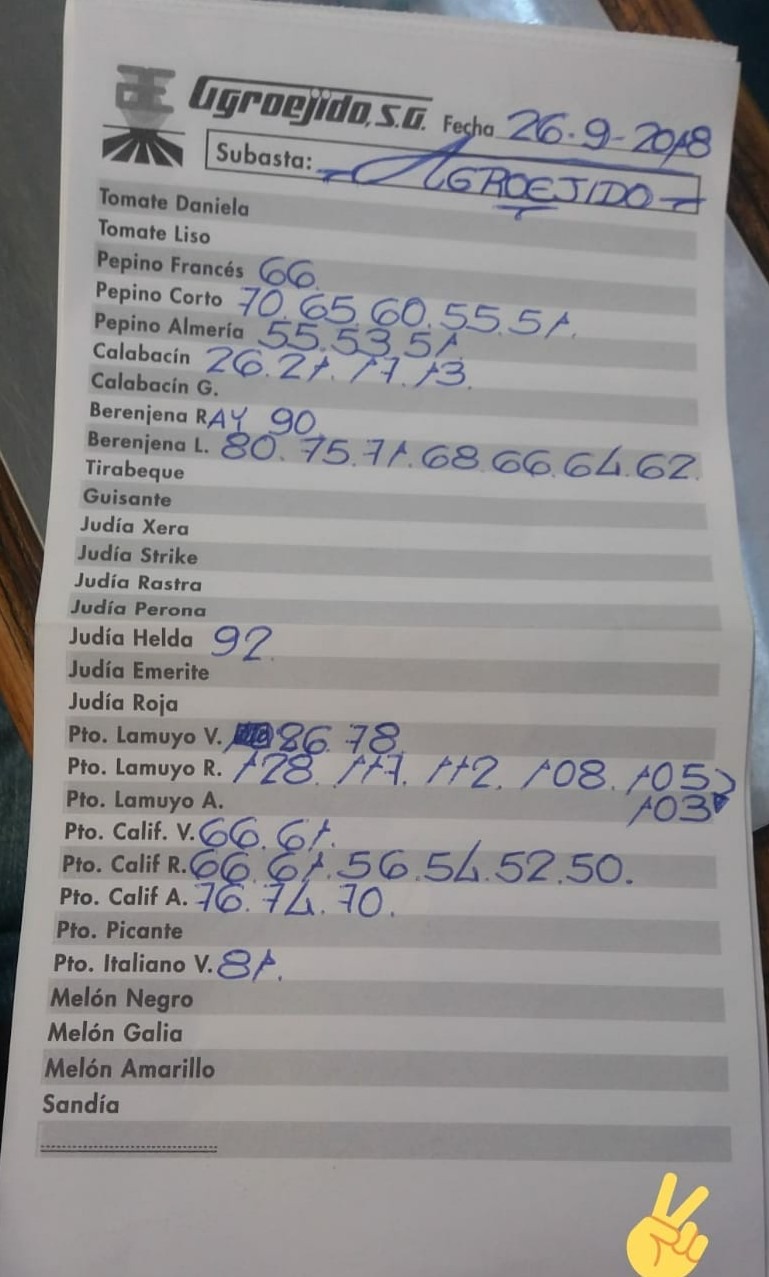 Agroejido, S.A. Fecha 26-9-2018
Subasta: AGROEJIDO
Tomate Daniela
Tomate Liso
Pepino Francés 66.
Pepino Corto 70. 65. 60. 55. 51.
Pepino Almería 55. 53. 51.
Calabacín 26. 21. 17. 13.
Calabacín G.
Berenjena RAY 90.
Berenjena L. 80. 75. 71. 68. 66. 64. 62.
Tirabeque
Guisante
Judía Xera
Judía Strike
Judía Rastra
Judía Perona
Judía Helda 92.
Judía Emerite
Judía Roja
Pto. Lamuyo V. 86. 78.
Pto. Lamuyo R. 128. 117. 112. 108. 105
Pto. Lamuyo A. 103
Pto. Calif. V. 66. 61.
Pto. Calif R. 66. 61. 56. 54. 52. 50.
Pto. Calif A. 76. 74. 70.
Pto. Picante
Pto. Italiano V. 81.
Melón Negro
Melón Galia
Melón Amarillo
Sandía